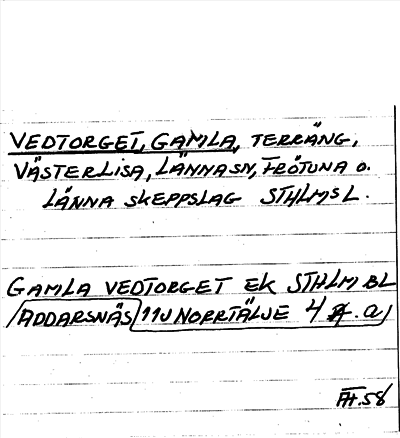 VEDTORGET, GAMLA, TERRÄNG,
VÄSTERLISA, LÄNNA SN, FRÖTUNA O.
LÄNNA SKEPPSLAG STHLMS L.
GAMLA VEDTORGET EK STHLM BL
ADDARSNÄS 11J NORRTÄLJE 4 A. a
.58